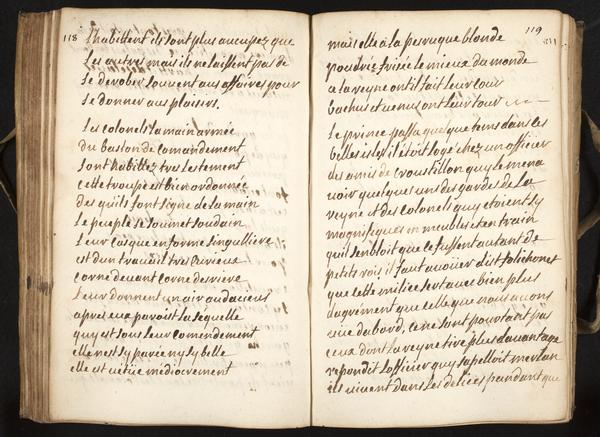 118
s'habillent ils sont plus aucupez que
Les autres mais ils ne laissent pas de
se derober souvent aus affaires pour
se donner aus plaisirs.
Les colonels la main armée
du baston de comandement
sont habillez tres lestement
cette troupe est bien ordonnée
des qu'ils font signe de la main
Le peuple se soumet soudain
Leur casque en forme singulliere
est d'un travail tres curieus
corne devant corne derriere
Leur donnent un air audacieus
apres eus paroist la sequelle
quy est sous leur comendement
elle n'est sy parée ny sy belle
elle est vetüe mediocrement
119
mais elle a la perruque blonde
poudrée frisée le mieux du monde
a la reyne ont il fait leur cour
bachus et venus ont leur tour
Le prince passa quelque tems dans ces
belles isles il étoit logé chez un officier
des amis de croustillon quy le mena
voir quelques uns des gardes de la
reyne et des colonels quy etoient sy
magnifiques en meubles et en train
qu'il sembloit que ce fussent autant de
petits rois, il faut avoüer dist folichonet
que cette milice sert avec bien plus
d'agrement que celle que nous avons
veüe d'abord, ce ne sont pourtant pas
ceux dont la reyne tire plus d'avantage
repondit l'officier quy s'apelloit merlan
ils vivent dans les delices pandant que